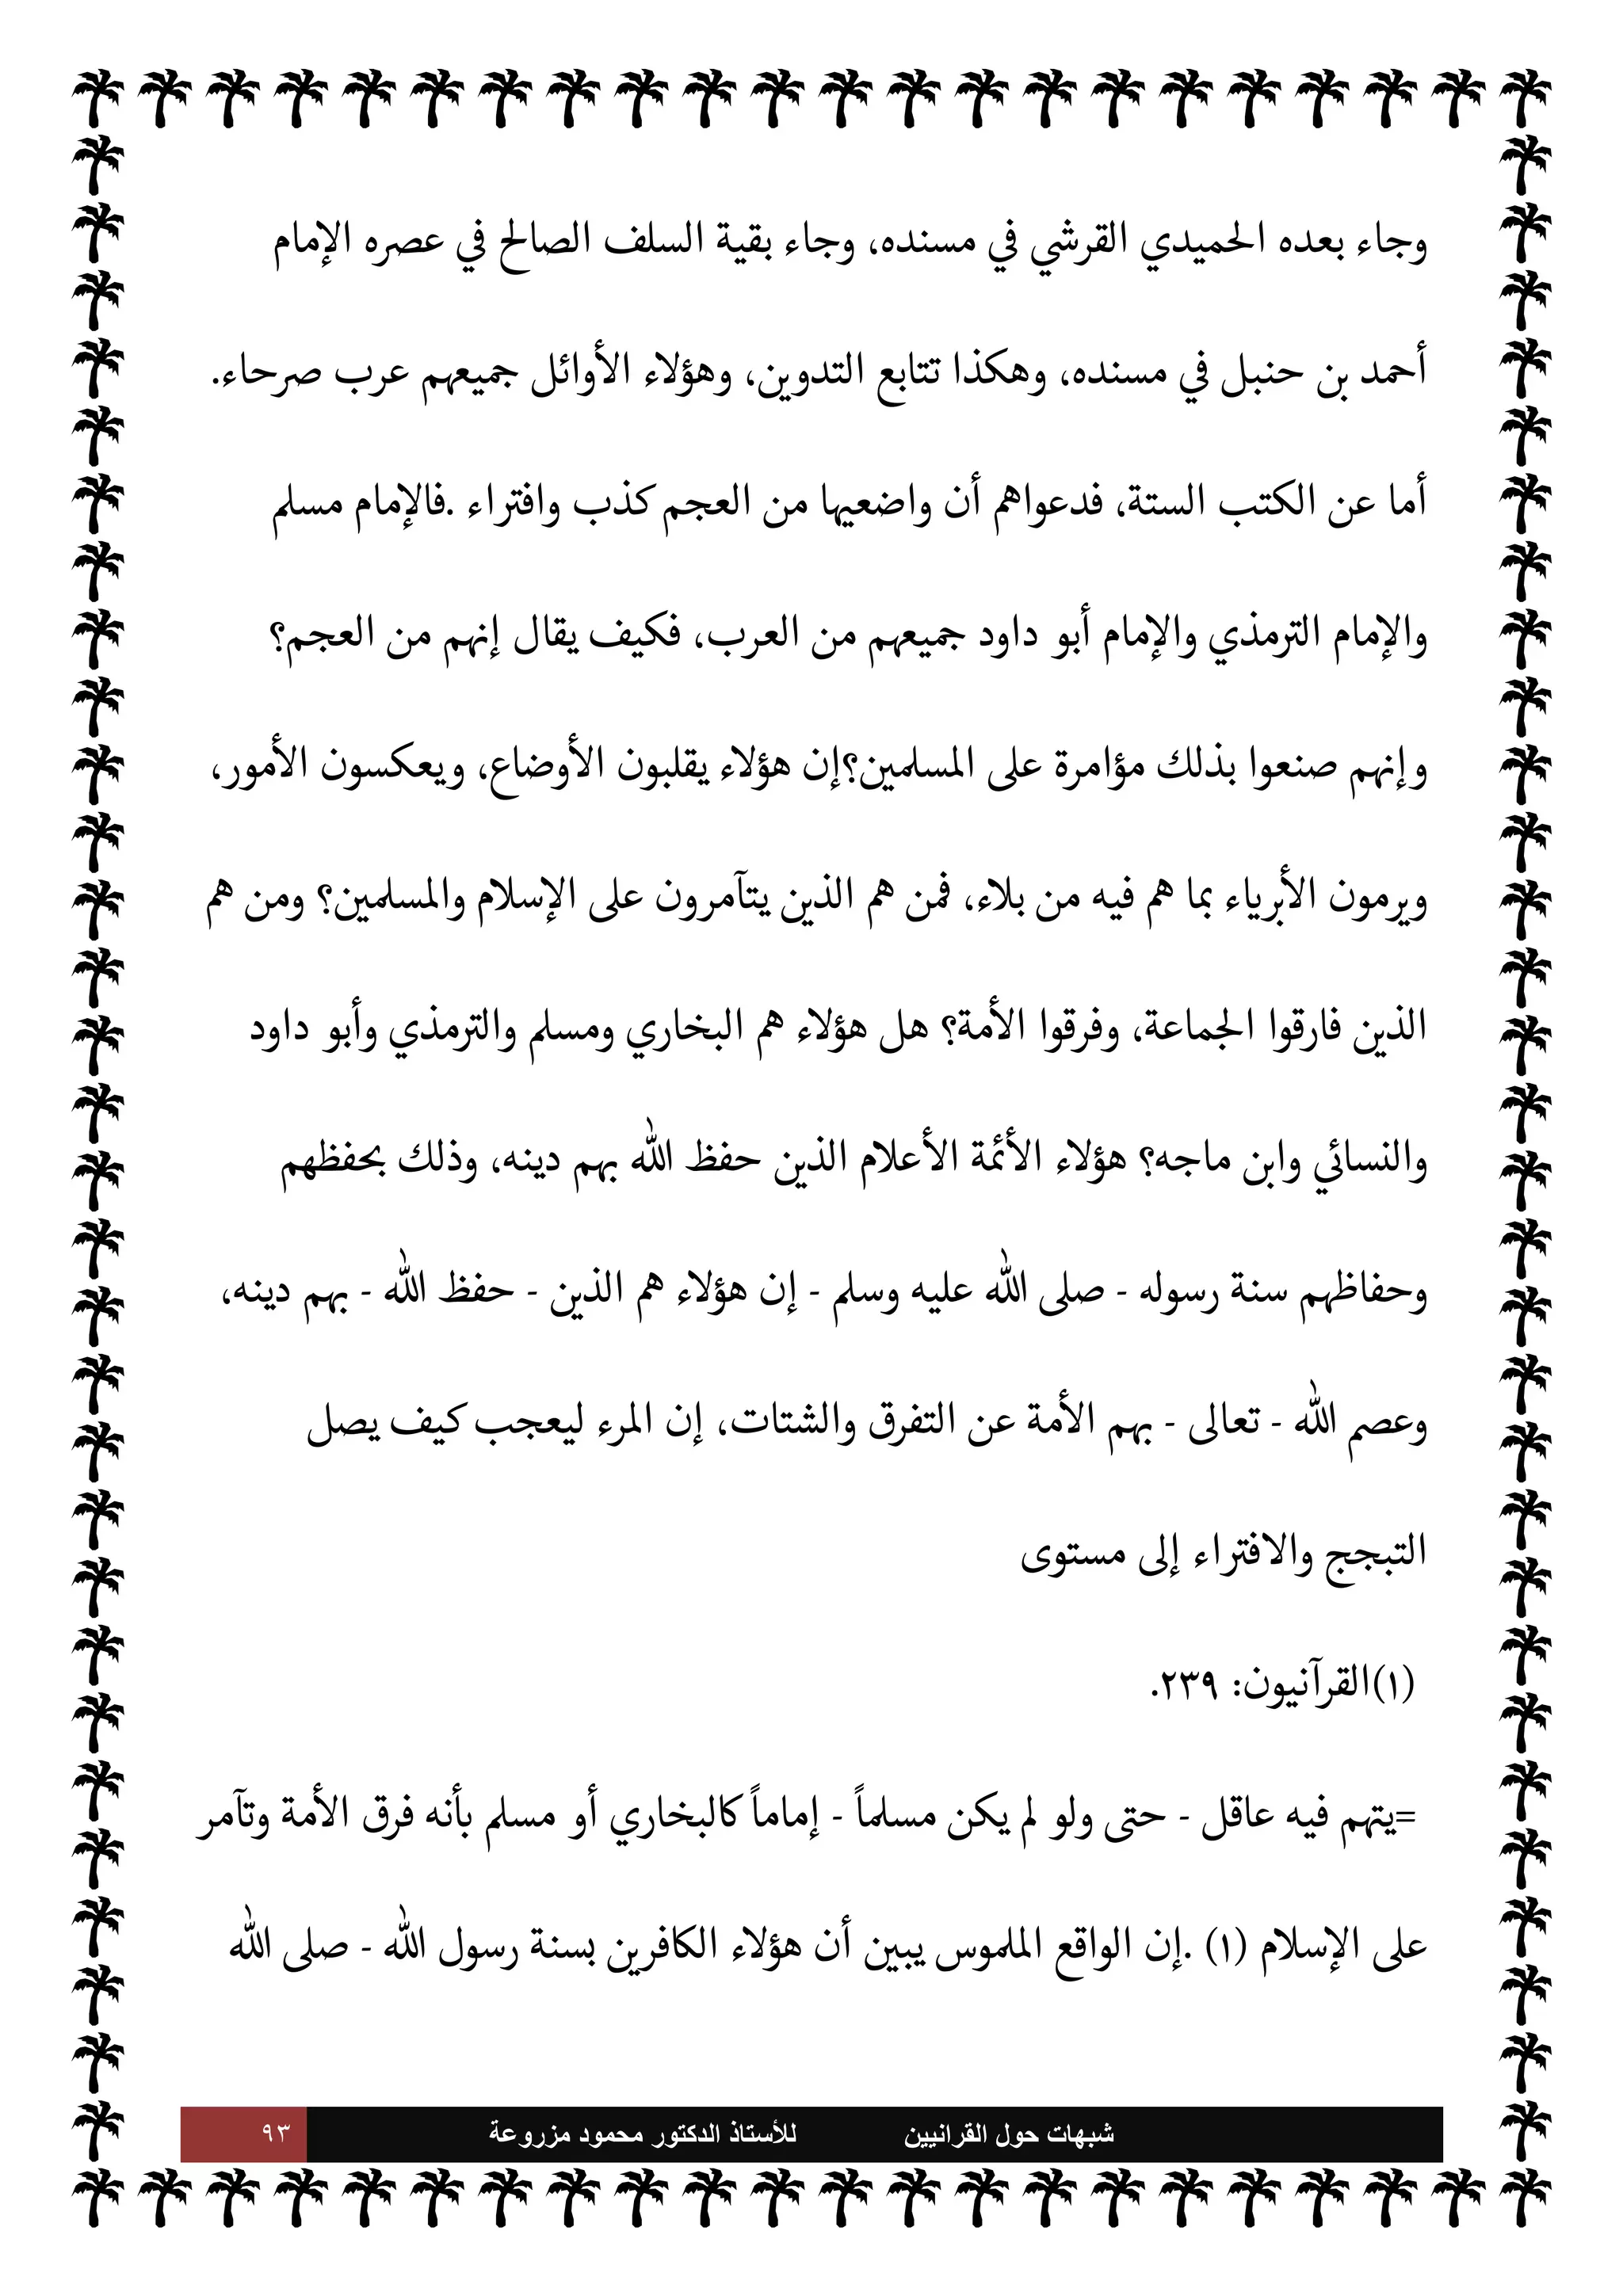 وجاء بعده الحميدي القرشي في مسنده، وجاء بقية السلف الصالح في عصره الإمام
أحمد بن حنبل في مسنده، وهكذا تتابع التدوين، وهؤلاء الأوائل جميعهم عرب صرحاء.
أما عن الكتب الستة، فدعواهم أن واضعيها من العجم كذب وافتراء .فالإمام مسلم
والإمام الترمذي والإمام أبو داود جميعهم من العرب، فكيف يقال إنهم من العجم؟
وإنهم صنعوا بذلك مؤامرة على المسلمين؟إن هؤلاء يقلبون الأوضاع، ويعكسون الأمور،
ويرمون الأبرياء بما هم فيه من بلاء، فمن هم الذين يتآمرون على الإسلام والمسلمين؟ ومن هم
الذين فارقوا الجماعة، وفرقوا الأمة؟ هل هؤلاء هم البخاري ومسلم والترمذي وأبو داود
والنسائي وابن ماجه؟ هؤلاء الأئمة الأعلام الذين حفظ الله بهم دينه، وذلك بحفظهم
وحفاظهم سنة رسوله - صلى الله عليه وسلم - إن هؤلاء هم الذين - حفظ الله - بهم دينه،
وعصم الله - تعالى - بهم الأمة عن التفرق والشتات، إن المرء ليعجب كيف يصل
التبجج والافتراء إلى مستوى
(١)القرآنيون: ٢٣٩.
=يتهم فيه عاقل - حتى ولو لم يكن مسلماً - إماماً كالبخاري أو مسلم بأنه فرق الأمة وتآمر
على الإسلام (١) .إن الواقع الملموس يبين أن هؤلاء الكافرين بسنة رسول الله - صلى الله
شبهات حول القرانيين للأستاذ الدكتور محمود مزروعة ٩٣